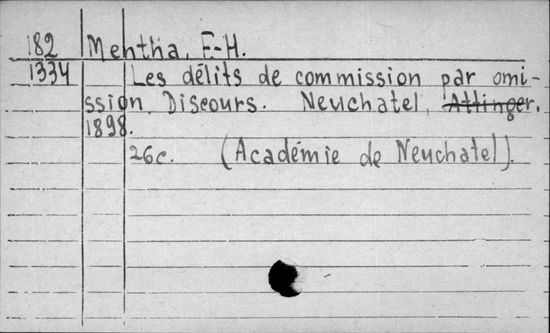 182 Mentha, F-H.
1334 Les délits de commission par omi-
ssion. Discours. Neuchatel, Attinger.
1898.
26c. (Académie de Neuchatel).